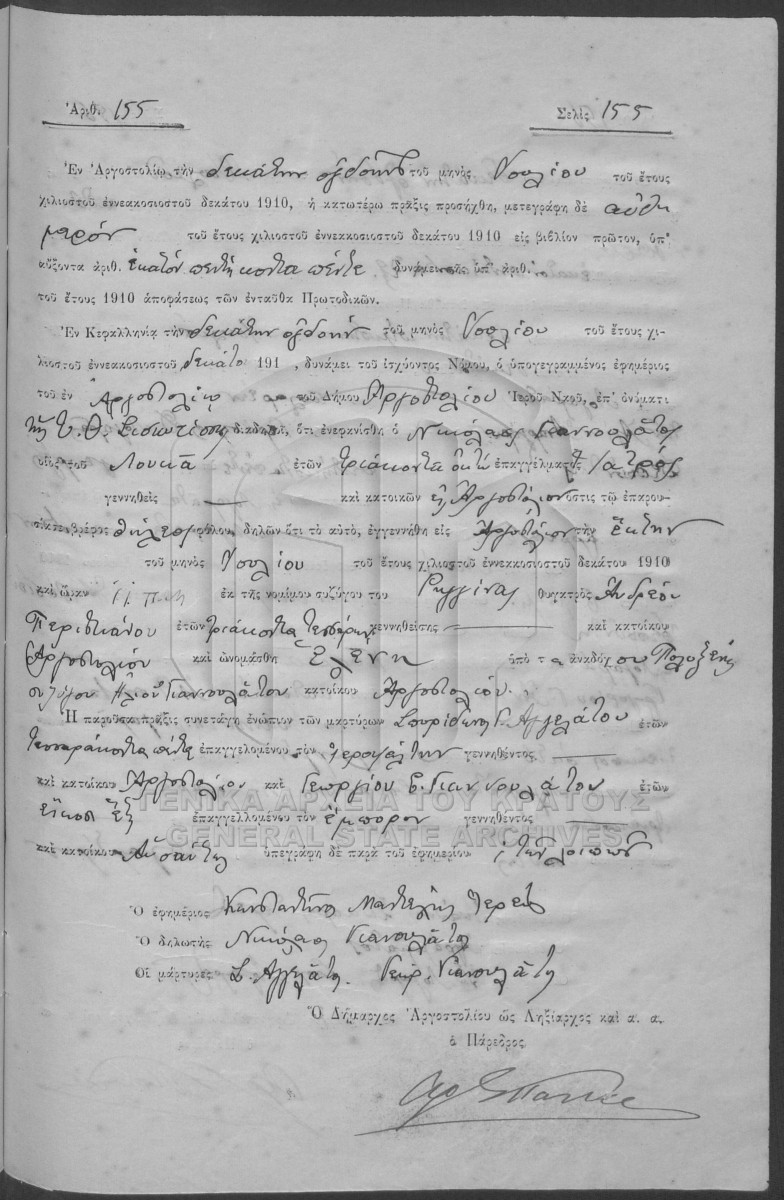 Ἀριθ. 155
Σελὶς 155
Ἐν Ἀργοστολίῳ τὴν δεκάτην ὀγδόην τοῦ μηνὸς Ἰουλίου τοῦ ἔτους
χιλιοστοῦ ἐννεακοσιοστοῦ δεκάτου 1910, ἡ κατωτέρω πρᾶξις προσήχθη, μετεγράφη δὲ αὐθη
μερόν τοῦ ἔτους χιλιοστοῦ ἐννεακοσιοστοῦ δεκάτου 1910 εἰς βιβλίον πρῶτον, ὑπ'
αὔξοντα ἀριθ. ἑκατόν πεντήκοντα πέντε δυνάμει τῆς ὑπ' ἀριθ.
τοῦ ἔτους 1910 ἀποφάσεως τῶν ἐνταῦθα Πρωτοδικῶν.
Ἐν Κεφαλληνίᾳ τὴν δεκάτην ὀγδόην τοῦ μηνὸς Ἰουλίου τοῦ ἔτους χι-
λιοστοῦ ἐννεακοσιοστοῦ δεκάτο 191 , δυνάμει τοῦ ἰσχύοντος Νόμου, ὁ ὑπογεγραμμένος ἐφημέριος
τοῦ ἐν Ἀργοστολίῳ τοῦ Δήμου Ἀργοστολίου Ἱεροῦ Ναοῦ, ἐπ' ὀνόματι
τῆς Ὑ. Θ. Σισιωτίσης διαδηλοῖ, ὅτι ἐνεφανίσθη ὁ Νικόλαος Γιαννουλᾶτος
υἱὸς τοῦ Λουκᾶ ἐτῶν τριάκοντα ὀκτώ ἐπαγγέλματος ἰατρός
γεννηθεὶς — καὶ κατοικῶν ἐν Ἀργοστόλιον ὅστις τῷ ἐπαρου-
σίασε βρέφος θήλεος φύλου, δηλῶν ὅτι τὸ αὐτὸ, ἐγεννήθη εἰς Ἀργοστόλιον τὴν ἕκτην
τοῦ μηνὸς Ἰουλίου τοῦ ἔτους χιλιοστοῦ ἐννεακοσιοστοῦ δεκάτου 1910
καὶ ὥραν 11 π.μ. ἐκ τῆς νομίμου συζύγου του Ρεγγίνας θυγατρὸς Ἀνδρέου
Περιστιάνου ἐτῶν τριάκοντα τεσσάρων γεννηθείσης — καὶ κατοίκου
Ἀργοστολίου καὶ ὠνομάσθη Ἑλένη ὑπὸ τ ἀναδόχ ου Πολυξένης
συζύγου Γιαννουλάτου κατοίκου Ἀργοστολίου.
Ἡ παροῦσα πρᾶξις συνετάγη ἐνώπιον τῶν μαρτύρων Σπυρίδωνος Γ. Ἀγγελάτου ἐτῶν
τεσσαράκοντα πέντε ἐπαγγελομένου τὸν ἱεροψάλτην γεννηθέντος —
καὶ κατοίκου Ἀργοστολίου καὶ Γεωργίου Σ. Γιαννουλάτου ἐτῶν
εἴκοσι ἕξ ἐπαγγελλομένου τὸν ἔμπορον γεννηθέντος —
καὶ κατοίκου Αὐσαύτως ὑπεγράφη δὲ παρὰ τοῦ ἐφημερίου κ τῶν λοιπῶν
ΓΕΝΙΚΑ ΑΡΧΕΙΑ ΤΟΥ ΚΡΑΤΟΥΣ
GENERAL STATE ARCHIVES
Ὁ ἐφημέριος Κωνσταντῖνος Μαντελης Ἱερεύς
Ὁ δηλωτὴς Νικόλαος Γιανουλᾶτος
Οἱ μάρτυρες Σ. Ἀγγελᾶτος Γεωρ. Γιανουλᾶτος
Ὁ Δήμαρχος Ἀργοστολίου ὡς Ληξίαρχος καὶ α. α.
ὁ Πάρεδρος.